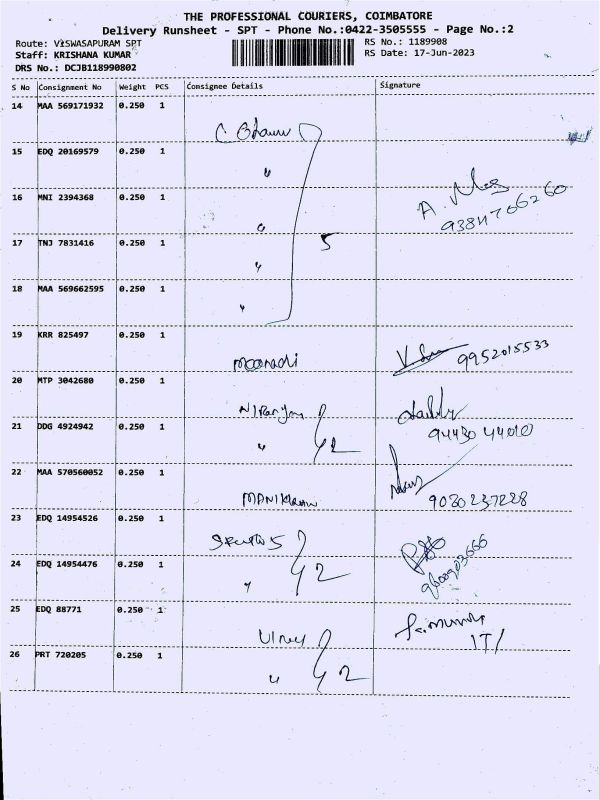 THE PROFESSIONAL COURIERS, COIMBATORE
Delivery Runsheet - SPT - Phone No.:0422-3505555 - Page No.:2
Route: VISWASAPURAM SPT RS No.: 1189908
Staff: KRISHANA KUMAR RS Date: 17-Jun-2023
DRS No.: DCJB118990802
S No Consignment No Weight PCS Consignee Details Signature
14 MAA 569171932 0.250 1
15 EDQ 20169579 0.250 1 "
16 MNI 2394368 0.250 1 "
17 TNJ 7831416 0.250 1 " 5
18 MAA 569662595 0.250 1 "
19 KRR 825497 0.250 1 9952015533
20 MTP 3042680 0.250 1
21 DDG 4924942 0.250 1 " 2 9443044010
22 MAA 570560052 0.250 1 9030237228
23 EDQ 14954526 0.250 1
24 EDQ 14954476 0.250 1 " 2
25 EDQ 88771 0.250 1
26 PRT 720205 0.250 1 " 2